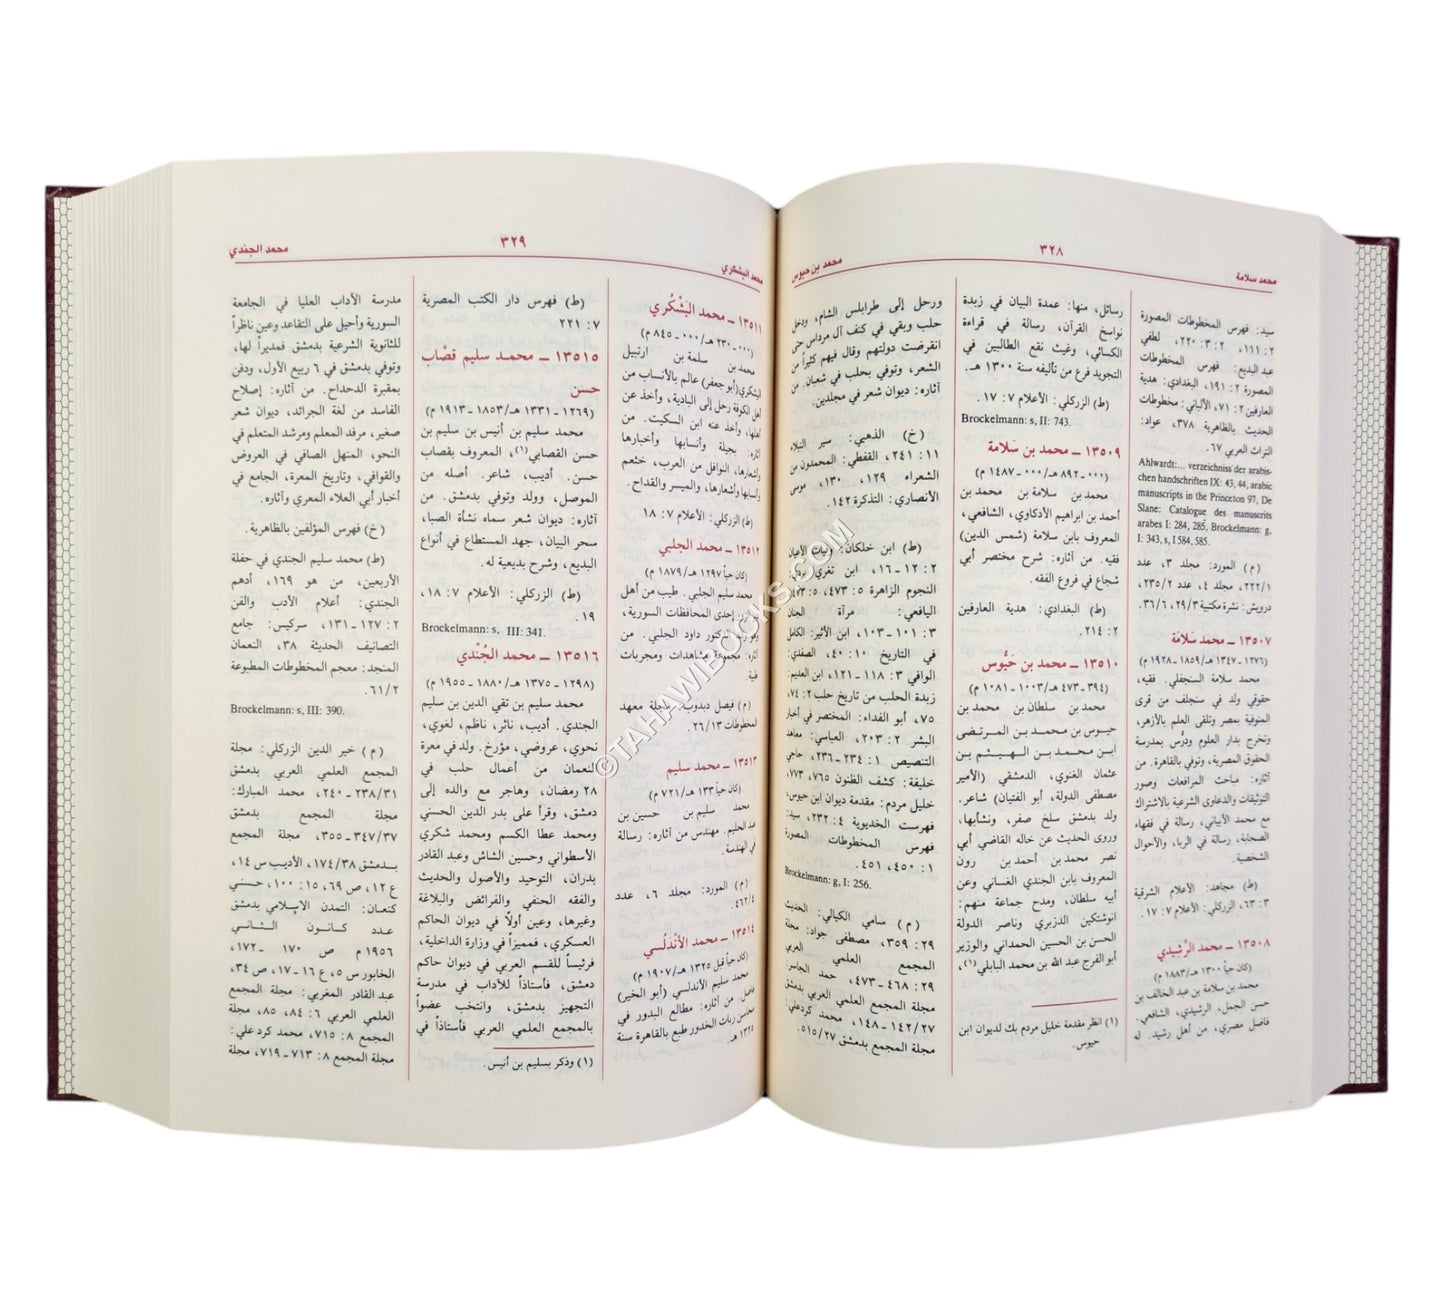 محمد سلامة
٣٢٨
محمد بن حيوس
سيد: فهرس المخطوطات المصورة
٢ : ١١١، ٣:٢ : ٢٢٠، لطفي
عبد البديع: فهرس المخطوطات
المصورة ٢ : ١٩١، البغدادي: هدية
العارفين ٢ : ٧١، الألباني: مخطوطات
الحديث بالظاهرية ٣٧٨، عواد:
التراث العربي ٦٧.
Ahlwardt:... verzeichniss der arabis-
chen handschriften IX: 43, 44, arabic
manuscripts in the Princeton 97, De
Slane: Catalogue des manuscrits
arabes I: 284, 285, Brockelmann: g,
I: 343, s, I 584, 585.
(م) المورد: مجلد ٣، عدد
٢٢٢/١، مجلد ٤، عدد ٢٣٥/٢،
درويش: نشرة مكتبية ٢٩/٣، ٣٦/٦.
١٣٥٠٧ ــ محمد سَلامَة
(١٢٧٦ ـ ١٣٤٧ هـ/١٨٥٩ ـ ١٩٢٨ م)
محمد سلامة السنجلفي. فقيه،
حقوقي ولد في سنجلف من قرى
المنوفية بمصر وتلقى العلم بالأزهر،
وتخرج بدار العلوم ودرَّس بمدرسة
الحقوق المصرية، وتوفي بالقاهرة. من
آثاره: مباحث المرافعات وصور
التوثيقات والدعاوى الشرعية بالاشتراك
مع محمد الأبياني، رسالة في فقهاء
الصحابة، رسالة في الربا، والأحوال
الشخصية.
(ط) مجاهد: الأعلام الشرقية
٣ : ٦٣، الزركلي: الأعلام ٧ : ١٧.
١٣٥٠٨ ــ محمد الرَّشِيدي
(كان حياً ١٣٠٠ هـ/١٨٨٣ م)
محمد بن سلامة بن عبد الخالف بن
حسن الجمل، الرشيدي، الشافعي.
فاضل مصري، من أهل رشيد. له
رسائل، منها: عمدة البيان في زبدة
نواسخ القرآن، رسالة في قراءة
الكسائي، وغيث نفع الطالبين في
التجويد فرغ من تأليفه سنة ١٣٠٠ هـ.
(ط) الزركلي: الأعلام ٧ : ١٧.
Brockelmann: s, II: 743.
١٣٥٠٩ ــ محمد بن سَلامة
(٠٠٠ ـ ٨٩٢ هـ/٠٠٠ ـ ١٤٨٧ م)
محمد بن سلامة بن محمد بن
أحمد بن ابراهيم الأدكاوي، الشافعي،
المعروف بابن سلامة (شمس الدين)
فقيه. من آثاره: شرح مختصر أبي
شجاع في فروع الفقه.
(ط) البغدادي: هدية العارفين
٢ : ٢١٤.
١٣٥١٠ ــ محمد بن حَيُّوس
(٣٩٤ ـ ٤٧٣ هـ/١٠٠٣ ـ ١٠٨١ م)
محمد بن سلطان بن محمد بن
حيوس بن محمد بن المرتضى
ابن محمد بن الهيثم بن
عثمان الغنوي، الدمشقي (الأمير
مصطفى الدولة، أبو الفتيان) شاعر.
ولد بدمشق سلخ صفر، ونشأبها،
وروى الحديث عن خاله القاضي أبي
نصر محمد بن أحمد بن رون
المعروف بابن الجندي الغساني وعن
أبيه سلطان، ومدح جماعة منهم:
انوشتكين الدزبري وناصر الدولة
الحسن بن الحسين الحمداني والوزير
أبو الفرج عبد الله بن محمد البابلي(١)،
(١) انظر مقدمة خليل مردم بك لديوان ابن
حيوس.
ورحل إلى طرابلس الشام، ودخل
حلب وبقي في كنف آل مرداس حتى
انقرضت دولتهم وقال فيهم كثيراً من
الشعر، وتوفي بحلب في شعبان. من
آثاره: ديوان شعر في مجلدين.
(خ) الذهبي: سير النبلاء
١١ : ٢٤١، القفطي: المحمدون من
الشعراء ١٢٩، ١٣٠، موسى
الأنصاري: التذكرة ١٤٢.
(ط) ابن خلكان: وفيات الأعيان
٢ : ١٢ ـ ١٦، ابن تغري بردي:
النجوم الزاهرة ٥ : ٤٧٣،
اليافعي: مرآة الجنان
٣ : ١٠١ ـ ١٠٣، ابن الأثير: الكامل
في التاريخ ١٠ : ٤٠، الصفدي:
الوافي ٣ : ١١٨ ـ ١٢١، ابن العديم:
زبدة الحلب من تاريخ حلب ٢ : ٧٤،
٧٥، أبو الفداء: المختصر في أخبار
البشر ٢ : ٢٠٣، العباسي: معاهد
التنصيص ١ : ٢٣٤ ـ ٢٣٦، حاجي
خليفة: كشف الظنون ٧٦٥، ٧٧٣،
خليل مردم: مقدمة ديوان ابن حيوس،
فهرست الخديوية ٤ : ٢٣٢، سيد:
فهرس المخطوطات المصورة
١ : ٤٥٠، ٤٥١.
Brockelmann: g, I: 256.
(م) سامي الكيالي: الحديث
٢٩ : ٣٥٩، مصطفى جواد: مجلة
المجمع العلمي العربي
٢٩ : ٤٦٨ ـ ٤٧٣، حمد الجاسر:
مجلة المجمع العلمي العربي بدمشق
١٤٢/٢٧ ـ ١٤٨، محمد كردعلي:
مجلة المجمع بدمشق ٥١٥/٢٧.
محمد اليشكري
٣٢٩
محمد الجندي
١٣٥١١ ــ محمد اليَشْكُري
(٠٠٠ ـ ٢٣٠ هـ/٠٠٠ ـ ٨٤٥ م)
محمد بن سلمة بن ارتبيل
اليشكري (أبو جعفر) عالم بالأنساب من
أهل الكوفة رحل إلى البادية، وأخذ عن
أهلها، وأخذ عنه ابن السكيت. من
آثاره: بجيلة وأنسابها وأخبارها
وأشعارها، النوافل من العرب، خثعم
وأنسابها وأشعارها، والميسر والقداح.
(ط) الزركلي: الأعلام ٧ : ١٨
١٣٥١٢ ــ محمد الجلبي
(كان حياً ١٢٩٧ هـ/١٨٧٩ م)
محمد سليم الجلبي. طبيب من أهل
إحدى المحافظات السورية،
الدكتور داود الجلبي. من
آثاره: مجموعة مشاهدات ومجربات
طبية.
(م) فيصل دبدوب: مجلة معهد
المخطوطات ٢٦/١٣.
١٣٥١٣ ــ محمد سليم
(كان حياً ١٣٣ هـ/٧٢١ م)
محمد سليم بن حسين بن
عبد الحليم. مهندس من آثاره: رسالة
في الهندسة.
(م) المورد: مجلد ٦، عدد
٤٦٢/٤.
١٣٥١٤ ــ محمد الأَنْدَلُسي
(كان حياً قبل ١٣٢٥ هـ/١٩٠٧ م)
محمد سليم الأندلسي (أبو الخير)
فاضل. من آثاره: مطالع البدور في
محاسن ربات الخدور طبع بالقاهرة سنة
١٣٢٥ هـ.
(ط) فهرس دار الكتب المصرية
٧ : ٢٢١.
١٣٥١٥ ــ محمد سليم قصّاب
حسن
(١٢٦٩ ـ ١٣٣١ هـ/١٨٥٣ ـ ١٩١٣ م)
محمد سليم بن أنيس بن سليم بن
حسن القصابي(١)، المعروف بقصاب
حسن. أديب، شاعر. أصله من
الموصل، وولد وتوفي بدمشق. من
آثاره: ديوان شعر سماه نشأة الصبا،
سحر البيان، جهد المستطاع في أنواع
البديع، وشرح بديعية له.
(ط) الزركلي: الأعلام ٧ : ١٨،
١٩.
Brockelmann: s, III: 341.
١٣٥١٦ ــ محمد الجُنْدي
(١٢٩٨ ـ ١٣٧٥ هـ/١٨٨٠ ـ ١٩٥٥ م)
محمد سليم بن تقي الدين بن سليم
الجندي. أديب، ناثر، ناظم، لغوي،
نحوي، عروضي، مؤرخ. ولد في معرة
النعمان من أعمال حلب في
٢٨ رمضان، وهاجر مع والده إلى
دمشق، وقرأ على بدر الدين الحسني
ومحمد عطا الكسم ومحمد شكري
الأسطواني وحسين الشاش وعبد القادر
بدران، التوحيد والأصول والحديث
والفقه الحنفي والفرائض والبلاغة
وغيرها، وعين أولاً في ديوان الحاكم
العسكري، فمميزاً في وزارة الداخلية،
فرئيساً للقسم العربي في ديوان حاكم
دمشق، فأستاذاً للآداب في مدرسة
التجهيز بدمشق، وانتخب عضواً
بالمجمع العلمي العربي فأستاذاً في
(١) وذكر بسليم بن أنيس.
مدرسة الآداب العليا في الجامعة
السورية وأحيل على التقاعد وعين ناظراً
للثانوية الشرعية بدمشق فمديراً لها،
وتوفي بدمشق في ٦ ربيع الأول، ودفن
بمقبرة الدحداح. من آثاره: إصلاح
الفاسد من لغة الجرائد، ديوان شعر
صغير، مرفد المعلم ومرشد المتعلم في
النحو، المنهل الصافي في العروض
والقوافي، وتاريخ المعرة، الجامع في
أخبار أبي العلاء المعري وآثاره.
(خ) فهرس المؤلفين بالظاهرية.
(ط) محمد سليم الجندي في حفلة
الأربعين، من هو ١٦٩، أدهم
الجندي: أعلام الأدب والفن
٢ : ١٢٧ ـ ١٣١، سركيس: جامع
التصانيف الحديثة ٣٨، النعمان
المنجد: معجم المخطوطات المطبوعة
٦١/٢.
Brockelmann: s, III: 390.
(م) خير الدين الزركلي: مجلة
المجمع العلمي العربي بدمشق
٢٣٨/٣١ ـ ٢٤٠، محمد المبارك:
مجلة المجمع بدمشق
٣٤٧/٣٧ ـ ٣٥٥، مجلة المجمع
بدمشق ١٧٤/٣٨، الأديب س ١٤،
ع ١٢، ص ٦٩، ١٥ : ١٠٠، حسني
كنعان: التمدن الإسلامي بدمشق
عدد كانون الثاني
١٩٥٦ م ص ١٧٠ ـ ١٧٢،
الخابور س ٥، ع ١٦ ـ ١٧، ص ٣٤،
عبد القادر المغربي: مجلة المجمع
العلمي العربي ٦ : ٨٤، ٨٥، مجلة
المجمع ٨ : ٧١٥، محمد كرد علي:
مجلة المجمع ٨ : ٧١٣ ـ ٧١٩، مجلة
©TAHAWIBOOKS.COM